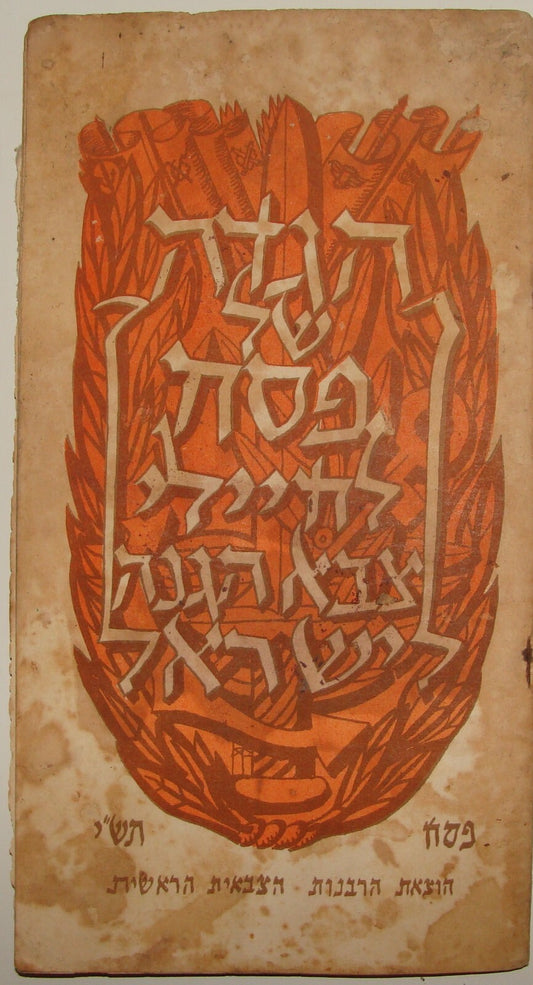 הגדה
של
פסח
לחיילי
צבא הגנה
לישראל
פסח תש"י
הוצאת הרבנות הצבאית הראשית